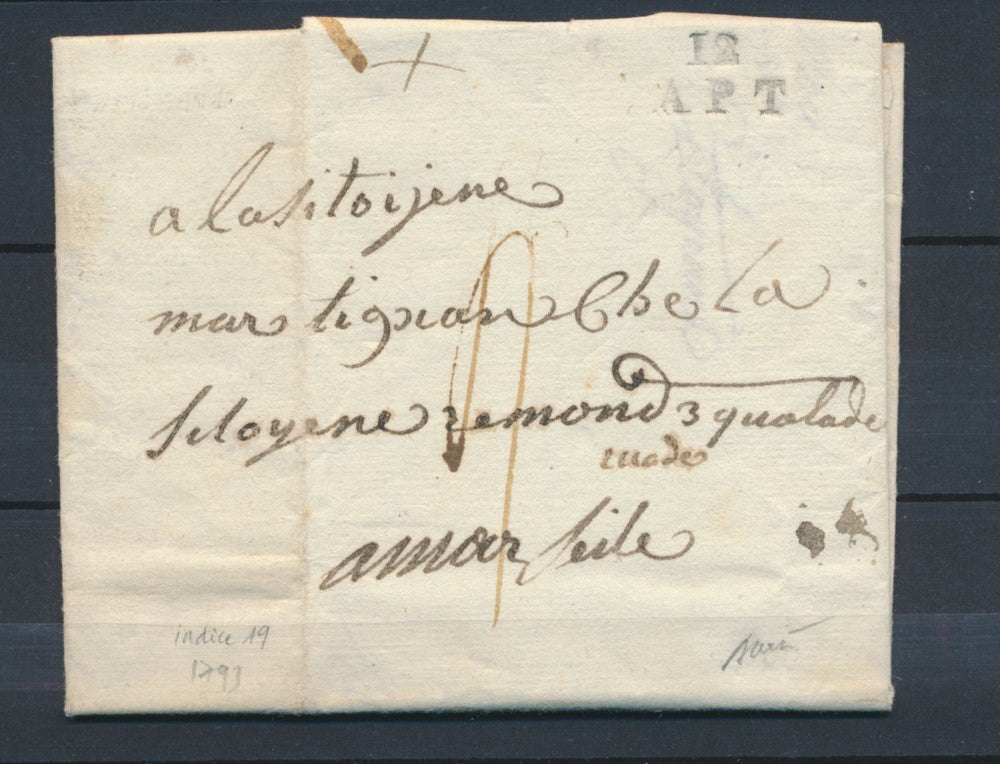 12
APT
a la sitoijene
martignan Che La
sitoyene remond
ruade
a marseile
indice 19
1793